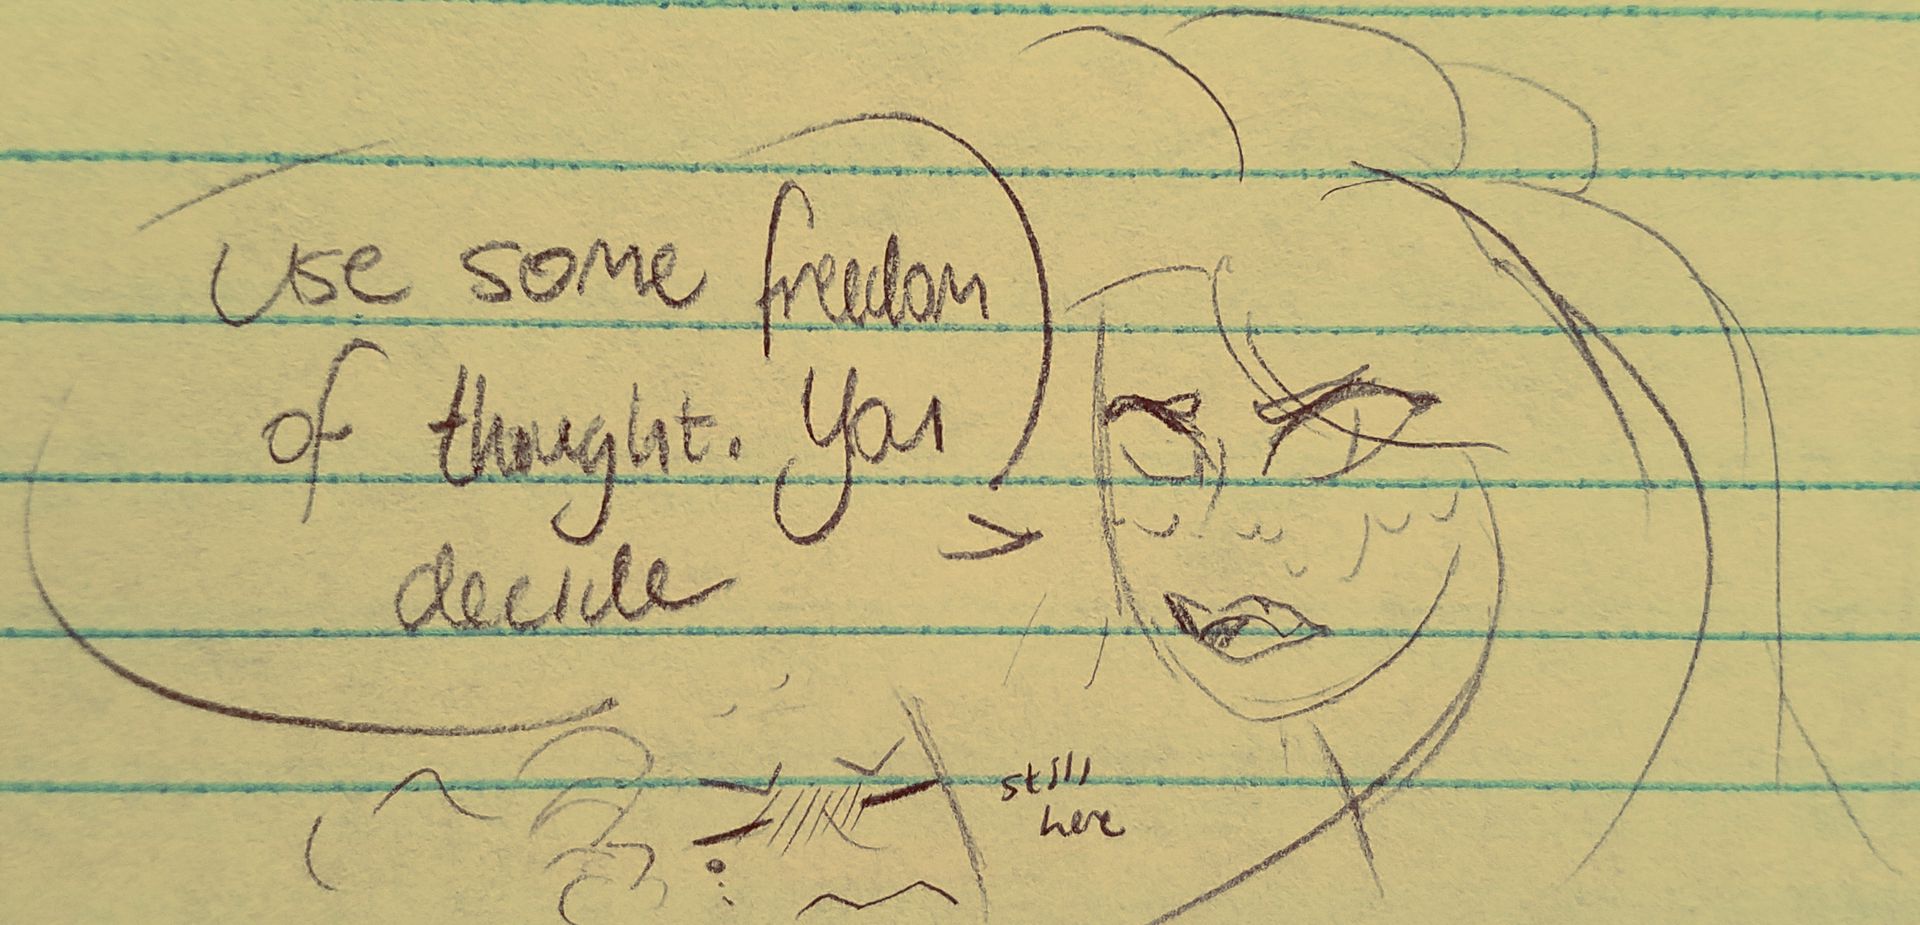 Use some freedom
of thought. You
decide
still
here